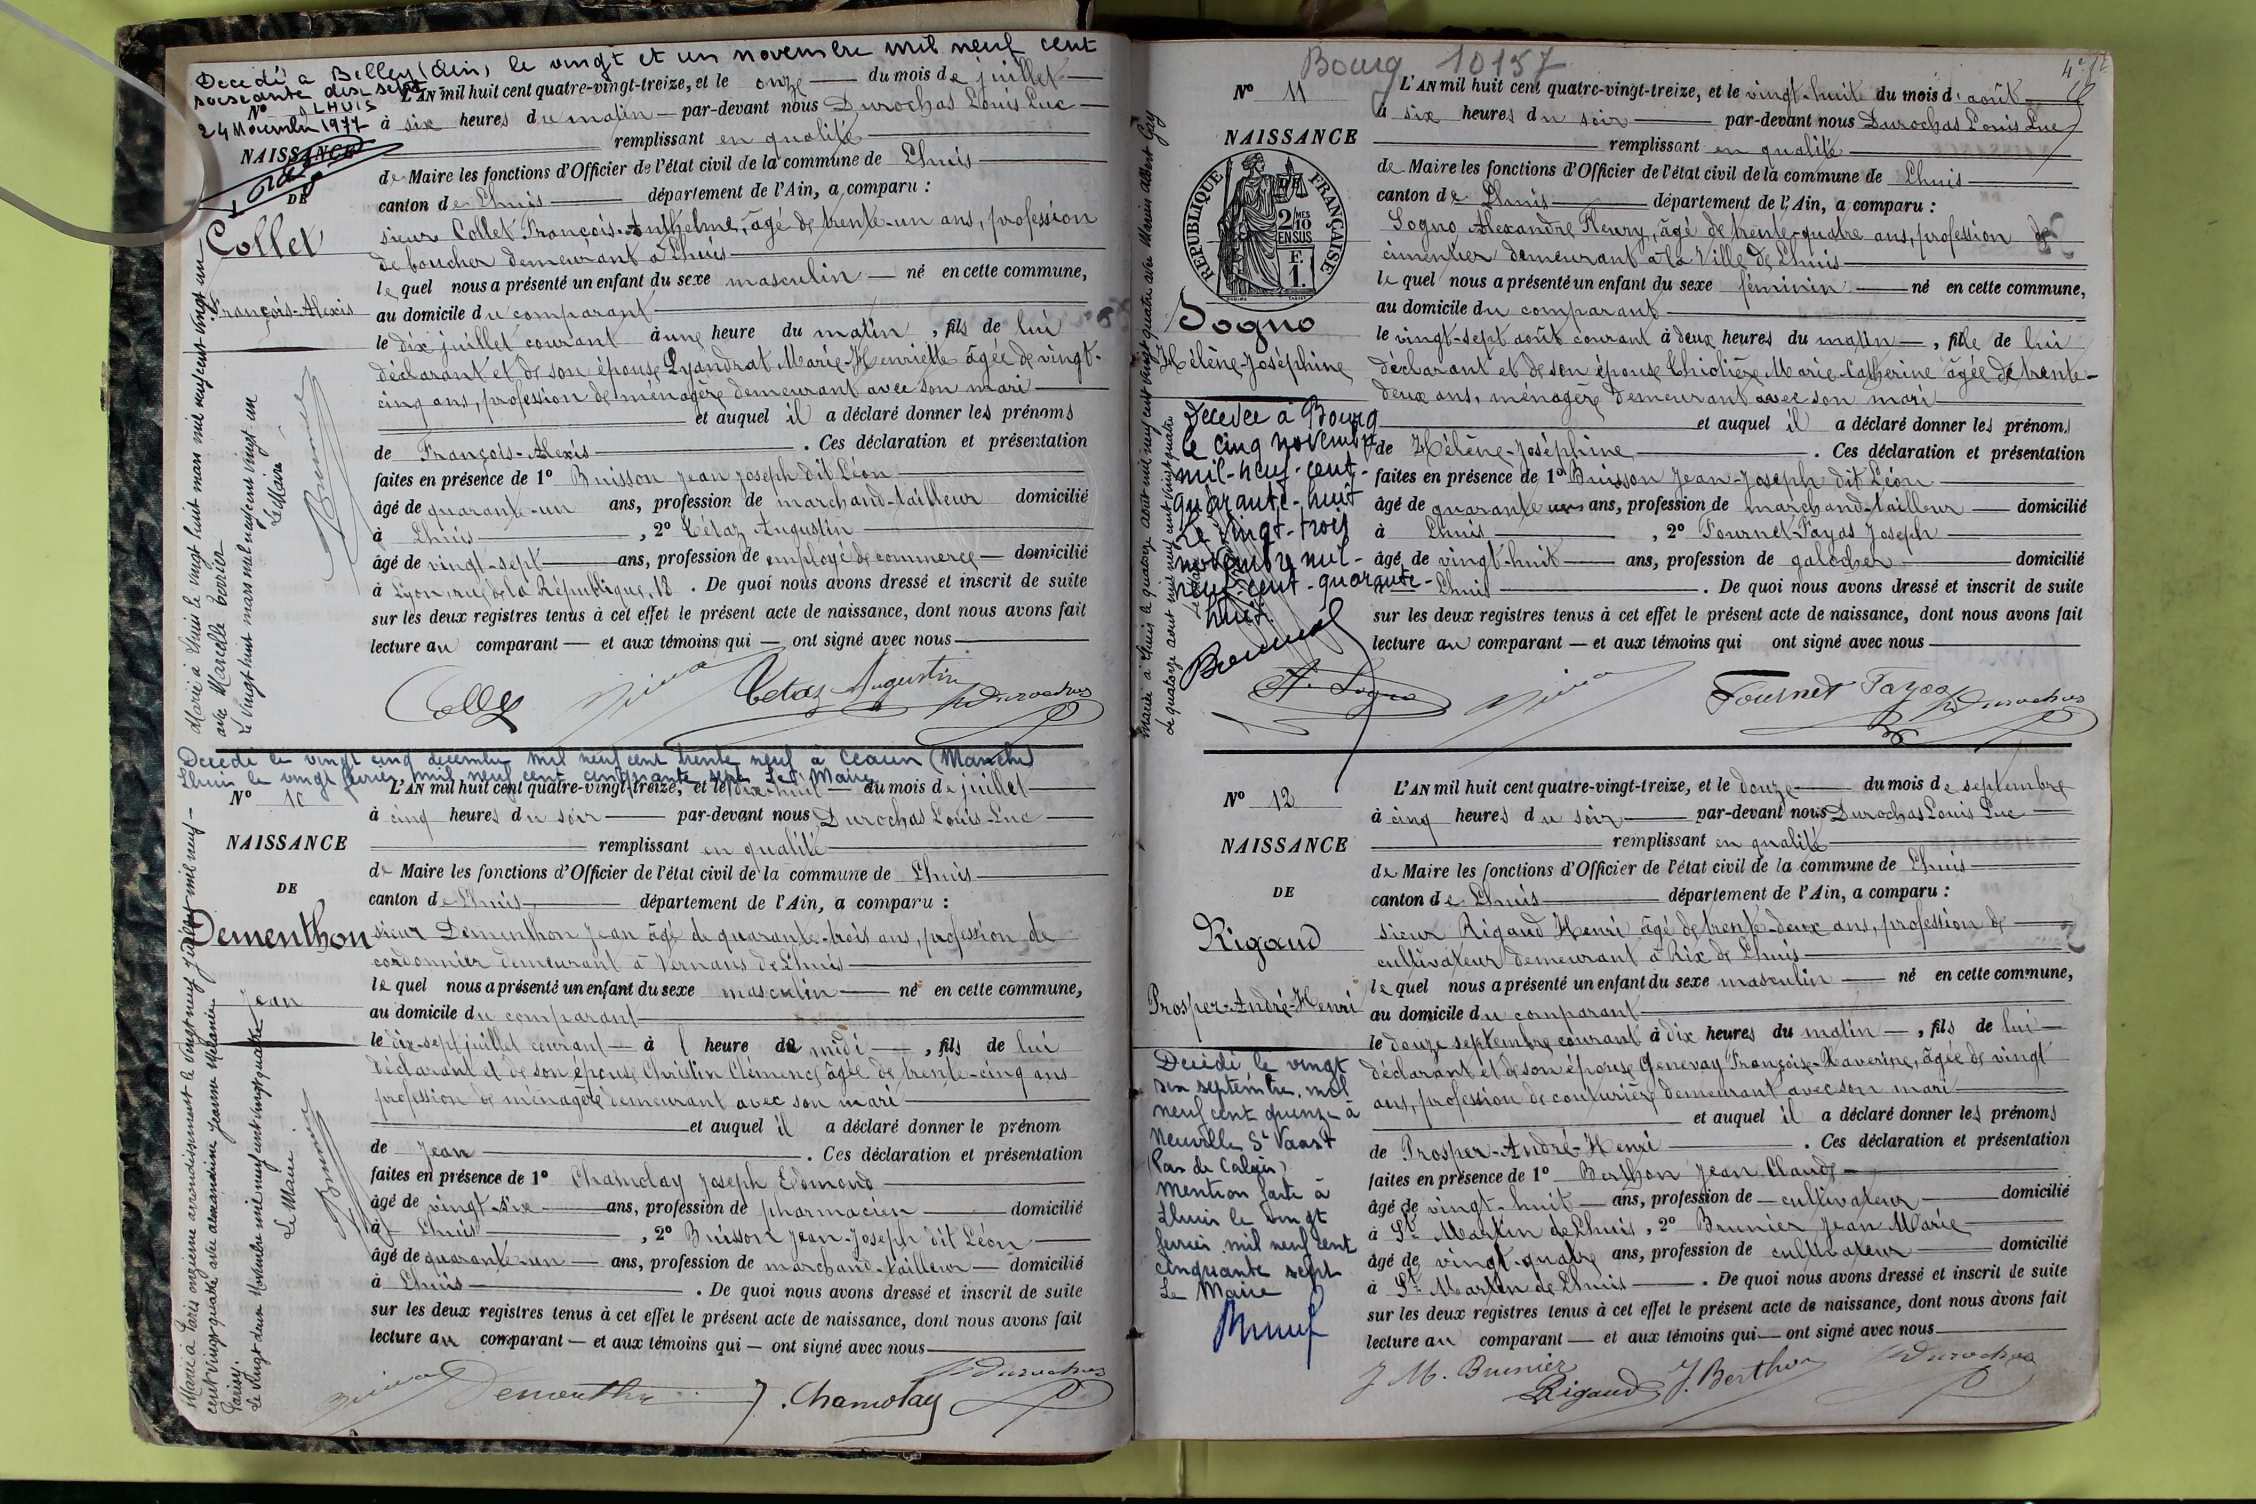 Decedé à Belley (Ain) le vingt et un novembre mil neuf cent
soixante dix sept
Nº LHUIS
24 Novembre 1977
NAISSANCE
DE
Collet
François-Alexis
L'AN mil huit cent quatre-vingt-treize, et le onze du mois de juillet
à six heures du matin par-devant nous Durochas Louis Luc
remplissant en qualité
de Maire les fonctions d'Officier de l'état civil de la commune de Lhuis
canton de Lhuis département de l'Ain, a comparu :
sieur Collet François-Anthelme, âgé de trente-un ans, profession
de boucher demeurant à Lhuis
lequel nous a présenté un enfant du sexe masculin né en cette commune,
au domicile du comparant
le dix juillet courant à une heure du matin, fils de lui
déclarant et de son épouse Lyandrat Marie-Henriette âgée de vingt-
cinq ans, profession de ménagère demeurant avec son mari
et auquel il a déclaré donner les prénoms
de François-Alexis. Ces déclaration et présentation
faites en présence de 1º Buisson Jean Joseph dit Léon
âgé de quarante-un ans, profession de marchand-tailleur domicilié
à Lhuis, 2º Tétaz Augustin
âgé de vingt-sept ans, profession de employé de commerce domicilié
à Lyon, rue de la République, 12. De quoi nous avons dressé et inscrit de suite
sur les deux registres tenus à cet effet le présent acte de naissance, dont nous avons fait
lecture au comparant — et aux témoins qui — ont signé avec nous
Tetaz Augustin
Durochas
Marié à Lhuis le vingt huit mars mil neuf cent vingt un
avec Marcelle Perrier
Le vingt huit mars mil neuf cent vingt un
Le Maire
Décédé le vingt cinq décembre mil neuf cent trente neuf à (Manche)
Lhuis le vingt février mil neuf cent cinquante sept Le Maire
Nº 10
NAISSANCE
DE
Dementhon
Jean
L'AN mil huit cent quatre-vingt-treize, et le dix-huit du mois de juillet
à cinq heures du soir par-devant nous Durochas Louis-Luc
remplissant en qualité
de Maire les fonctions d'Officier de l'état civil de la commune de Lhuis
canton de Lhuis département de l'Ain, a comparu :
sieur Dementhon Jean âgé de quarante-trois ans, profession de
cordonnier demeurant à Vernans de Lhuis
lequel nous a présenté un enfant du sexe masculin né en cette commune,
au domicile du comparant
le dix-sept juillet courant à 1 heure de midi, fils de lui
déclarant et de son épouse Christin Clémence âgée de trente-cinq ans
profession de ménagère demeurant avec son mari
et auquel il a déclaré donner le prénom
de Jean. Ces déclaration et présentation
faites en présence de 1º Chamolay Joseph Edmond
âgé de vingt-six ans, profession de pharmacien domicilié
à Lhuis, 2º Buisson Jean-Joseph dit Léon
âgé de quarante-un ans, profession de marchand-tailleur domicilié
à Lhuis. De quoi nous avons dressé et inscrit de suite
sur les deux registres tenus à cet effet le présent acte de naissance, dont nous avons fait
lecture au comparant — et aux témoins qui — ont signé avec nous
Dementhon
J. Chamolay
Durochas
Marié à Paris onzième arrondissement le vingt neuf
cent vingt quatre avec Jeanne Mélanie
Parisy.
Le vingt deux Novembre mil neuf cent vingt quatre
Le Maire
Bourg 10157
Nº 11
NAISSANCE
RÉPUBLIQUE FRANÇAISE
2/10 MES
EN SUS
F.
1.
Sogno
Hélène-Joséphine
L'AN mil huit cent quatre-vingt-treize, et le vingt-huit du mois d'août
à six heures du soir par-devant nous Durochas Louis Luc
remplissant en qualité
de Maire les fonctions d'Officier de l'état civil de la commune de Lhuis
canton de Lhuis département de l'Ain, a comparu :
Sogno Alexandre Fleury, âgé de trente-quatre ans, profession de
cimentier demeurant à la Ville de Lhuis
lequel nous a présenté un enfant du sexe féminin né en cette commune,
au domicile du comparant
le vingt-sept août courant à deux heures du matin, fille de lui
déclarant et de son épouse Chiolièze Marie-Catherine âgée de trente-
deux ans, ménagère demeurant avec son mari
et auquel il a déclaré donner les prénoms
de Hélène-Joséphine. Ces déclaration et présentation
faites en présence de 1º Buisson Jean-Joseph dit Léon
âgé de quarante un ans, profession de marchand-tailleur domicilié
à Lhuis, 2º Fournet-Fayas Joseph
âgé de vingt-huit ans, profession de galocher domicilié
à Lhuis. De quoi nous avons dressé et inscrit de suite
sur les deux registres tenus à cet effet le présent acte de naissance, dont nous avons fait
lecture au comparant — et aux témoins qui ont signé avec nous
A. Sogno
Fournet Fayas
Durochas
Décédée à Bourg
le cinq novembre
mil-neuf-cent-
quarante-huit
Le vingt-trois
novembre mil-
neuf-cent-quarante-
huit.
Mariée à Lhuis le quatorze août mil neuf cent vingt quatre avec Marius Albert Gay
Le quatorze août mil neuf cent vingt quatre
Nº 12
NAISSANCE
DE
Rigaud
Prosper-André-Henri
L'AN mil huit cent quatre-vingt-treize, et le douze du mois de septembre
à cinq heures du soir par-devant nous Durochas Louis Luc
remplissant en qualité
de Maire les fonctions d'Officier de l'état civil de la commune de Lhuis
canton de Lhuis département de l'Ain, a comparu :
sieur Rigaud Henri âgé de trente-deux ans, profession de
cultivateur demeurant à Rix de Lhuis
lequel nous a présenté un enfant du sexe masculin né en cette commune,
au domicile du comparant
le douze septembre courant à dix heures du matin, fils de lui
déclarant et de son épouse Genevay Françoise-Xaverine, âgée de vingt
ans, profession de couturière demeurant avec son mari
et auquel il a déclaré donner les prénoms
de Prosper-André-Henri. Ces déclaration et présentation
faites en présence de 1º Berthon Jean Claude
âgé de vingt-huit ans, profession de cultivateur domicilié
à St Martin de Lhuis, 2º Brunier Jean Marie
âgé de vingt-quatre ans, profession de cultivateur domicilié
à St Martin de Lhuis. De quoi nous avons dressé et inscrit de suite
sur les deux registres tenus à cet effet le présent acte de naissance, dont nous avons fait
lecture au comparant — et aux témoins qui — ont signé avec nous
J. M. Brunier
Rigaud
J. Berthon
Durochas
Décédé le vingt
six septembre mil
neuf cent quinze à
Neuville St Vaast
(Pas de Calais)
Mention faite à
Lhuis le vingt
février mil neuf cent
cinquante sept
Le Maire